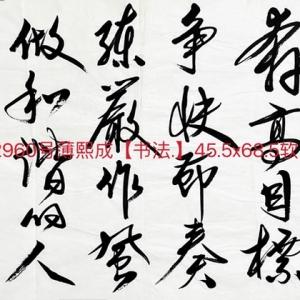 弃高目標
争快節奏
練嚴作螢
做和谐的人
2960号薄熙成【书法.】45.5x68.5软